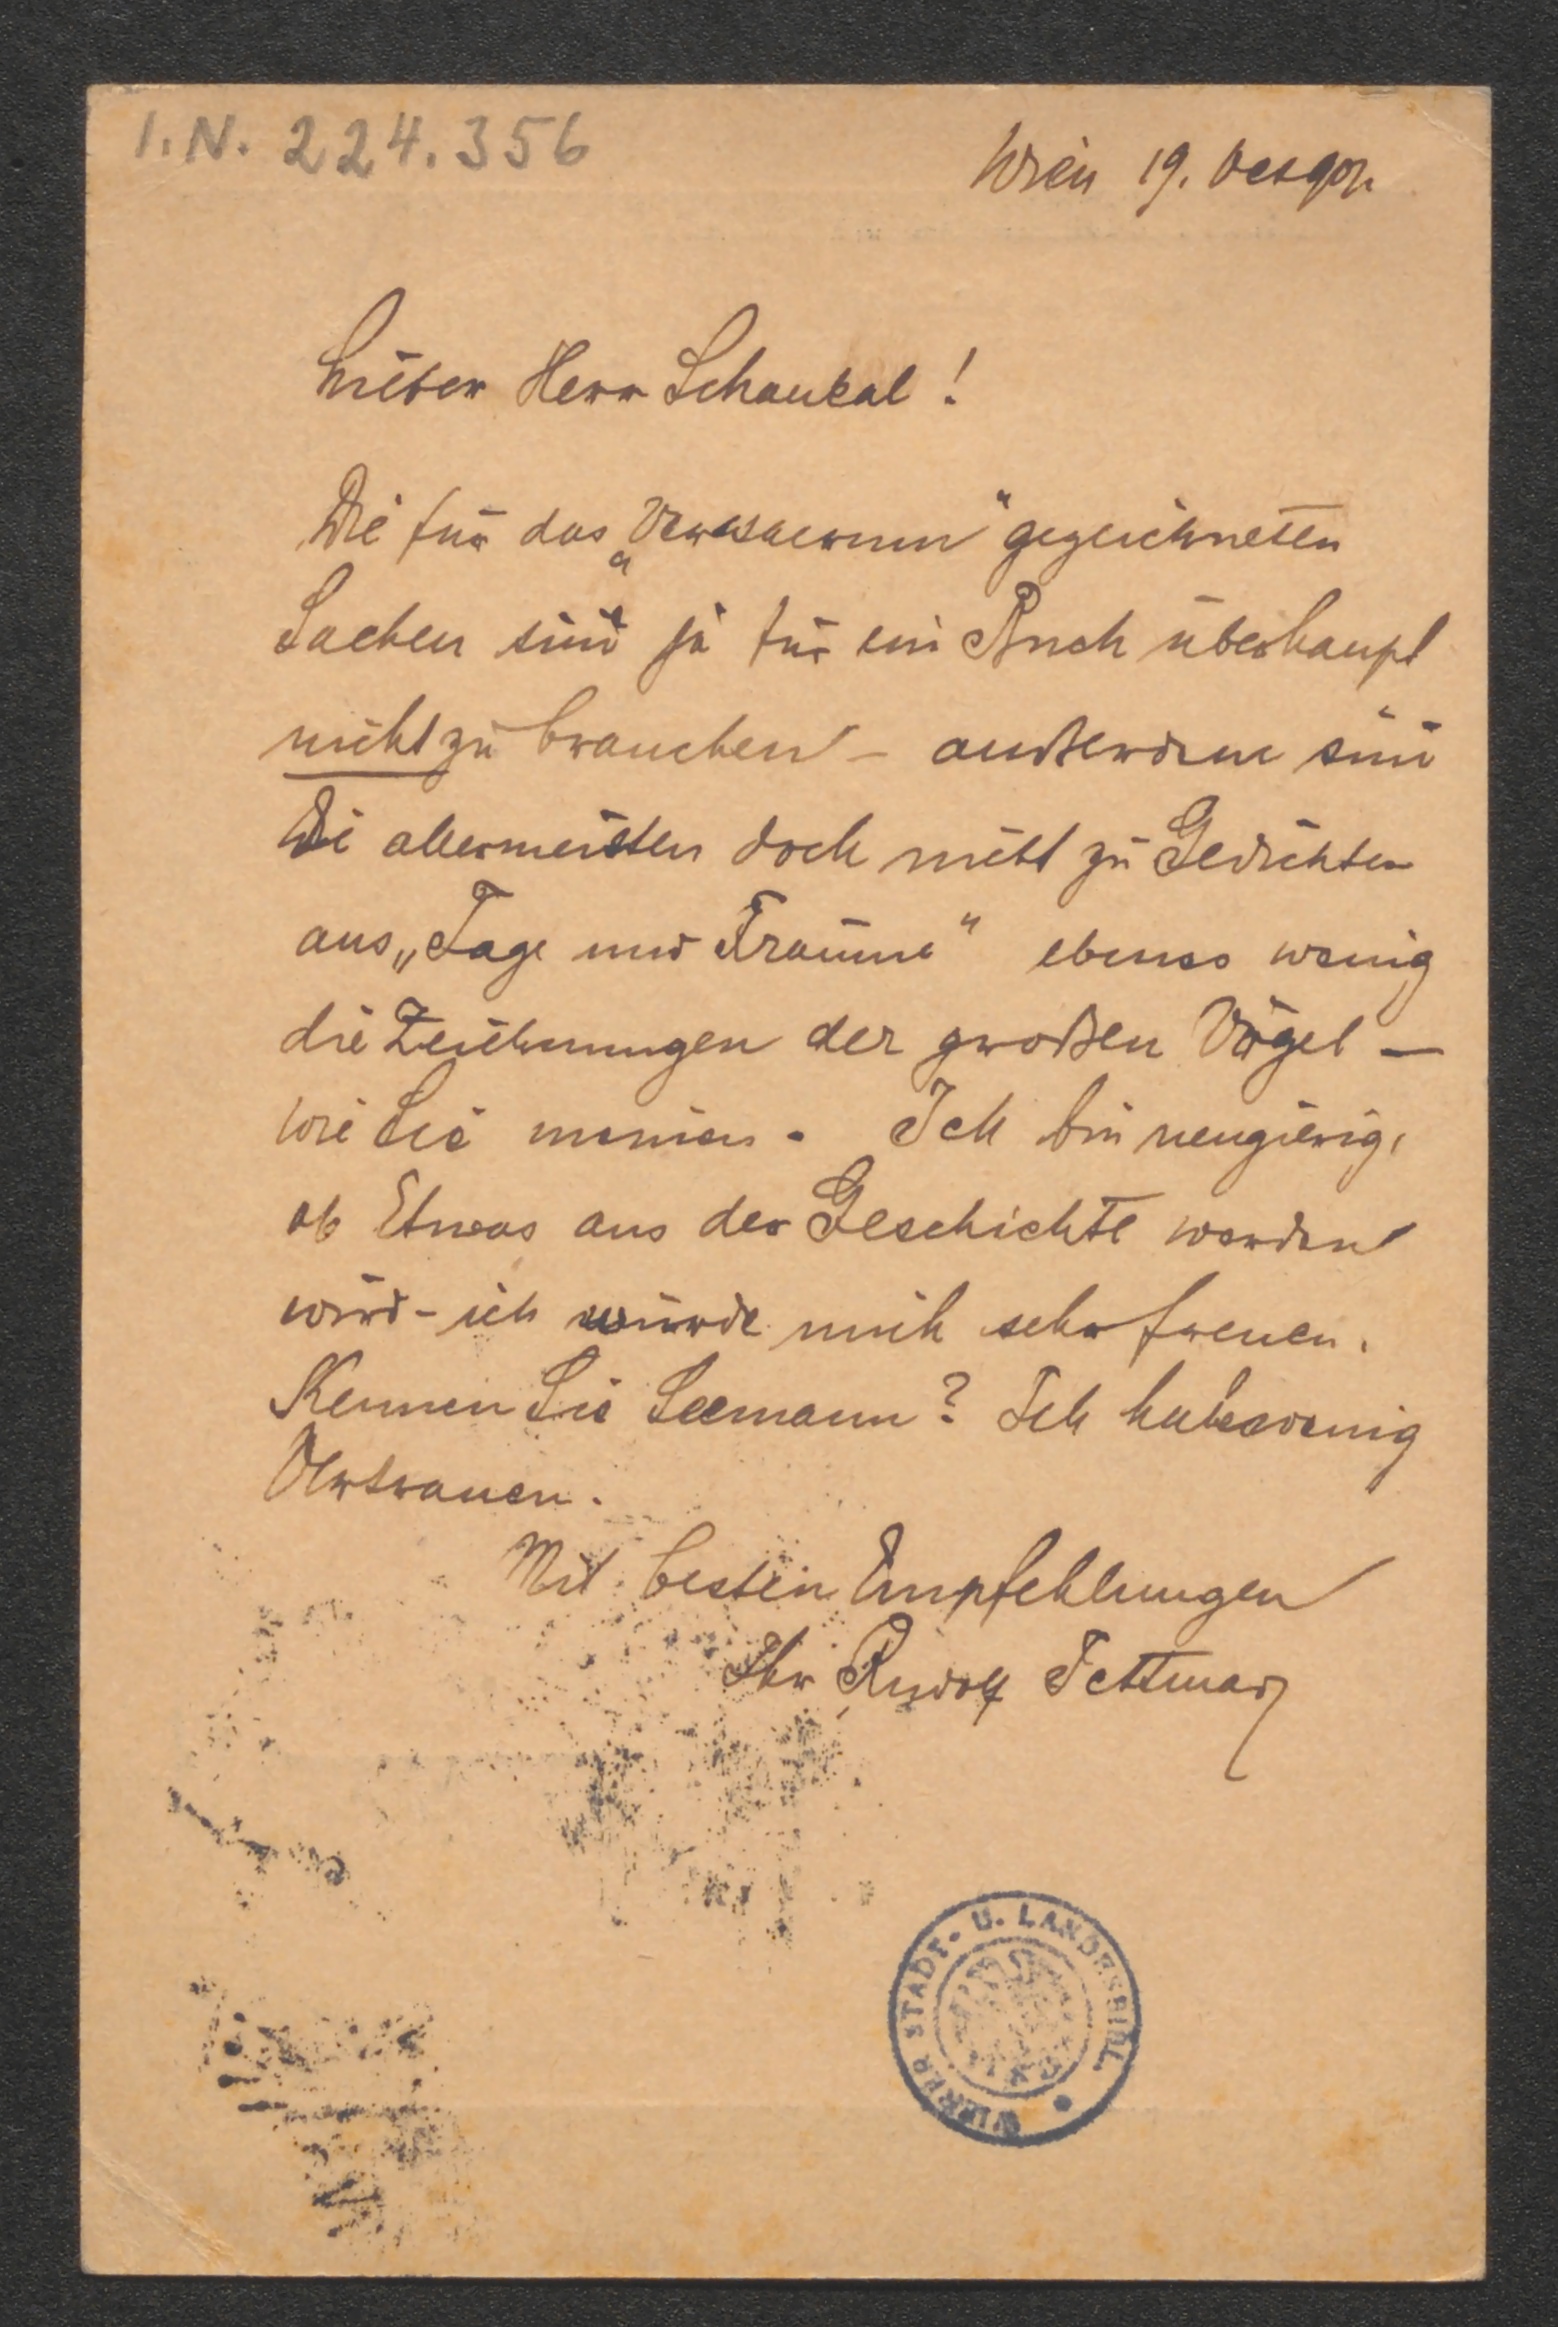 I.N. 224.356
Wien 19. Dez 901.
Lieber Herr Schaukal!
Die für das „Ver sacrum“ gezeichneten
Sachen sind ja für ein Buch überhaupt
nicht zu brauchen – außerdem sind
die allermeisten doch nicht zu Gedichten
aus „Tage und Träume“ ebenso wenig
die Zeichnungen der großen Vögel –
wie Sie meinen. Ich bin neugierig,
ob Etwas aus der Geschichte werden
wird – ich würde mich sehr freuen.
Kennen Sie Seemann? Ich habe wenig
Vertrauen.
Mit besten Empfehlungen
Ihr Rudolf Jettmar
WIENER STADT- U. LANDESBIBL.